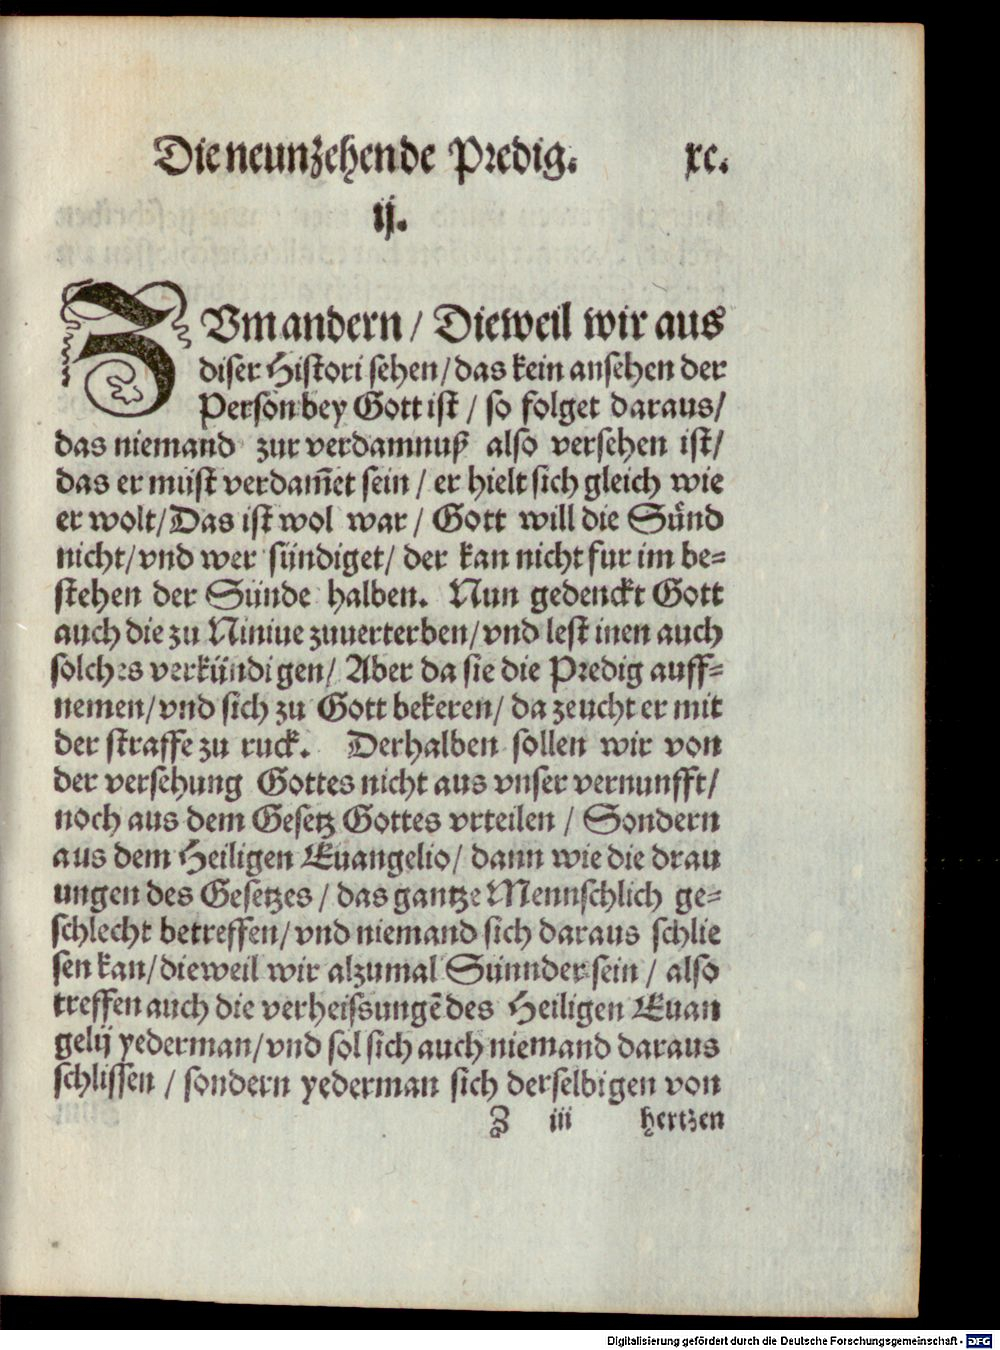 Die neunzehende Predig. xc.
ij.
ZVm andern / Dieweil wir aus
diser Histori sehen / das kein ansehen der
Person bey Gott ist / so folget daraus /
das niemand zur verdamnuß also versehen ist /
das er müst verdam̃et sein / er hielt sich gleich wie
er wolt / Das ist wol war / Gott will die Sünd
nicht / vnd wer sündiget / der kan nicht fur im be⸗
stehen der Sünde halben. Nun gedenckt Gott
auch die zu Niniue zuuerterben / vnd lest inen auch
solches verkündigen / Aber da sie die Predig auff⸗
nemen / vnd sich zu Gott bekeren / da zeucht er mit
der straffe zu ruck. Derhalben sollen wir von
der versehung Gottes nicht aus vnser vernunfft /
noch aus dem Gesetz Gottes vrteilen / Sondern
aus dem Heiligen Euangelio / dann wie die drau
ungen des Gesetzes / das gantze Mennschlich ge⸗
schlecht betreffen / vnd niemand sich daraus schlie
sen kan / dieweil wir alzumal Sünnder sein / also
treffen auch die verheissungẽ des Heiligen Euan
gelij yederman / vnd sol sich auch niemand daraus
schlissen / sondern yederman sich derselbigen von
Z iii hertzen
Digitalisierung gefördert durch die Deutsche Forschungsgemeinschaft - DFG